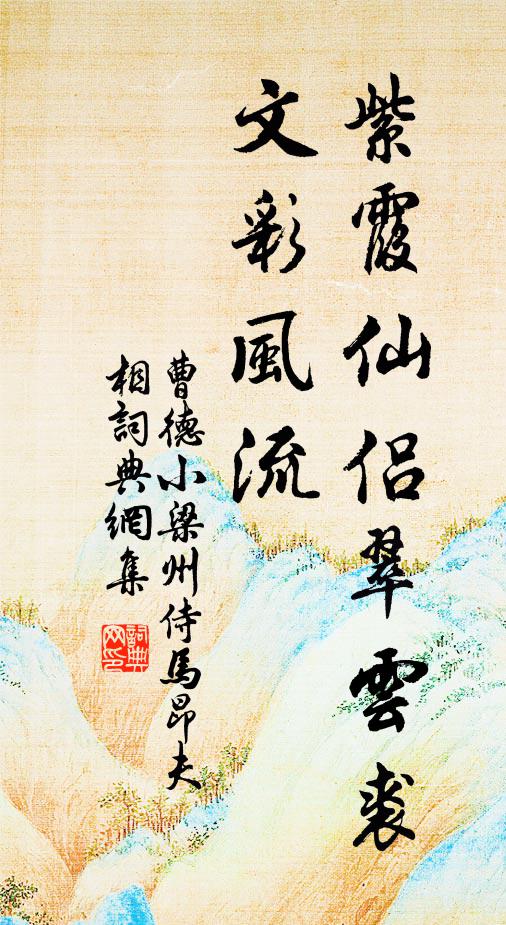 紫霞仙侶翠雲裘
文彩風流
曹德小梁州侍馬昂夫
相詞典網集
詞典